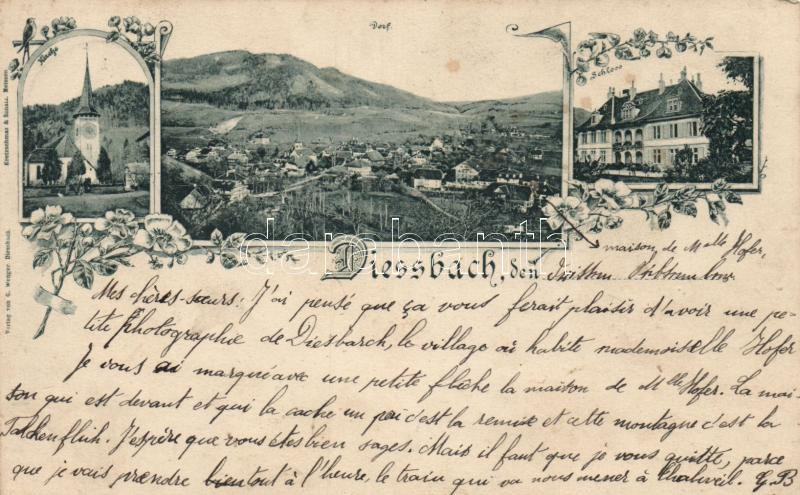 Kirche
Dorf.
Schloss
Diessbach, den
maison de Mlle Hofer.
Mes chères-sœurs. J'ai pensé que ça vous ferait plaisir d'avoir une pe-
tite photographie de Diesbarch, le village où habite mademoiselle Hofer
je vous ai marqué avec une petite flèche la maison de Mlle Hofer. La mai-
son qui est devant et qui la cache un pai c'est la remise et cette montagne c'est la
Falkenflüh. J'espère que vous êtes bien sages. Mais il faut que je vous quitte, parce
que je vais prendre bientout à l'heure, le train qui va nous mener à Thalweil. G B
Verlag von G. Wenger Diessbach.